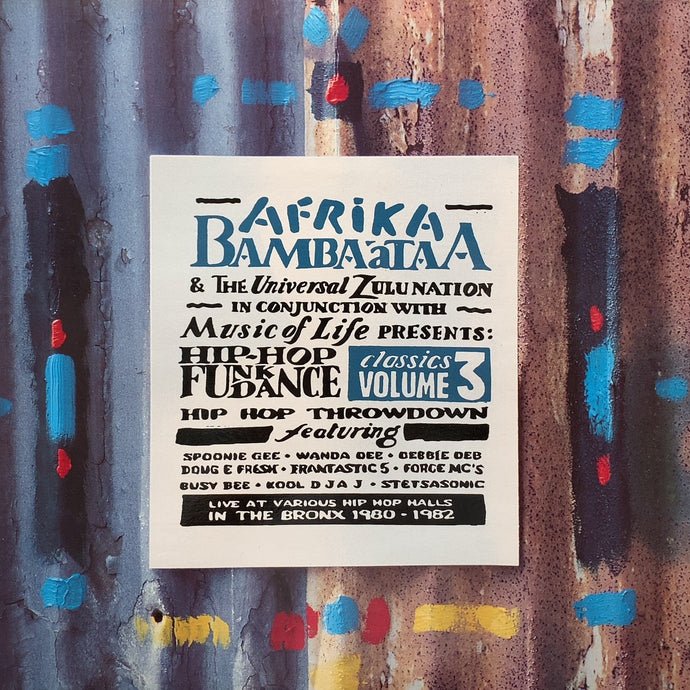 AFRIKA
BAMBAATAA
& THE Universal ZULU NATION
IN CONJUNCTION WITH
Music of Life PRESENTS:
HIP-HOP
FUNK DANCE
classics
VOLUME 3
HIP HOP THROWDOWN
featuring
SPOONIE GEE • WANDA DEE • DEBBIE DEB
DOUG E FRESH • FRANTASTIC 5 • FORCE MC'S
BUSY BEE • KOOL D JA J • STETSASONIC
LIVE AT VARIOUS HIP HOP HALLS
IN THE BRONX 1980 - 1982